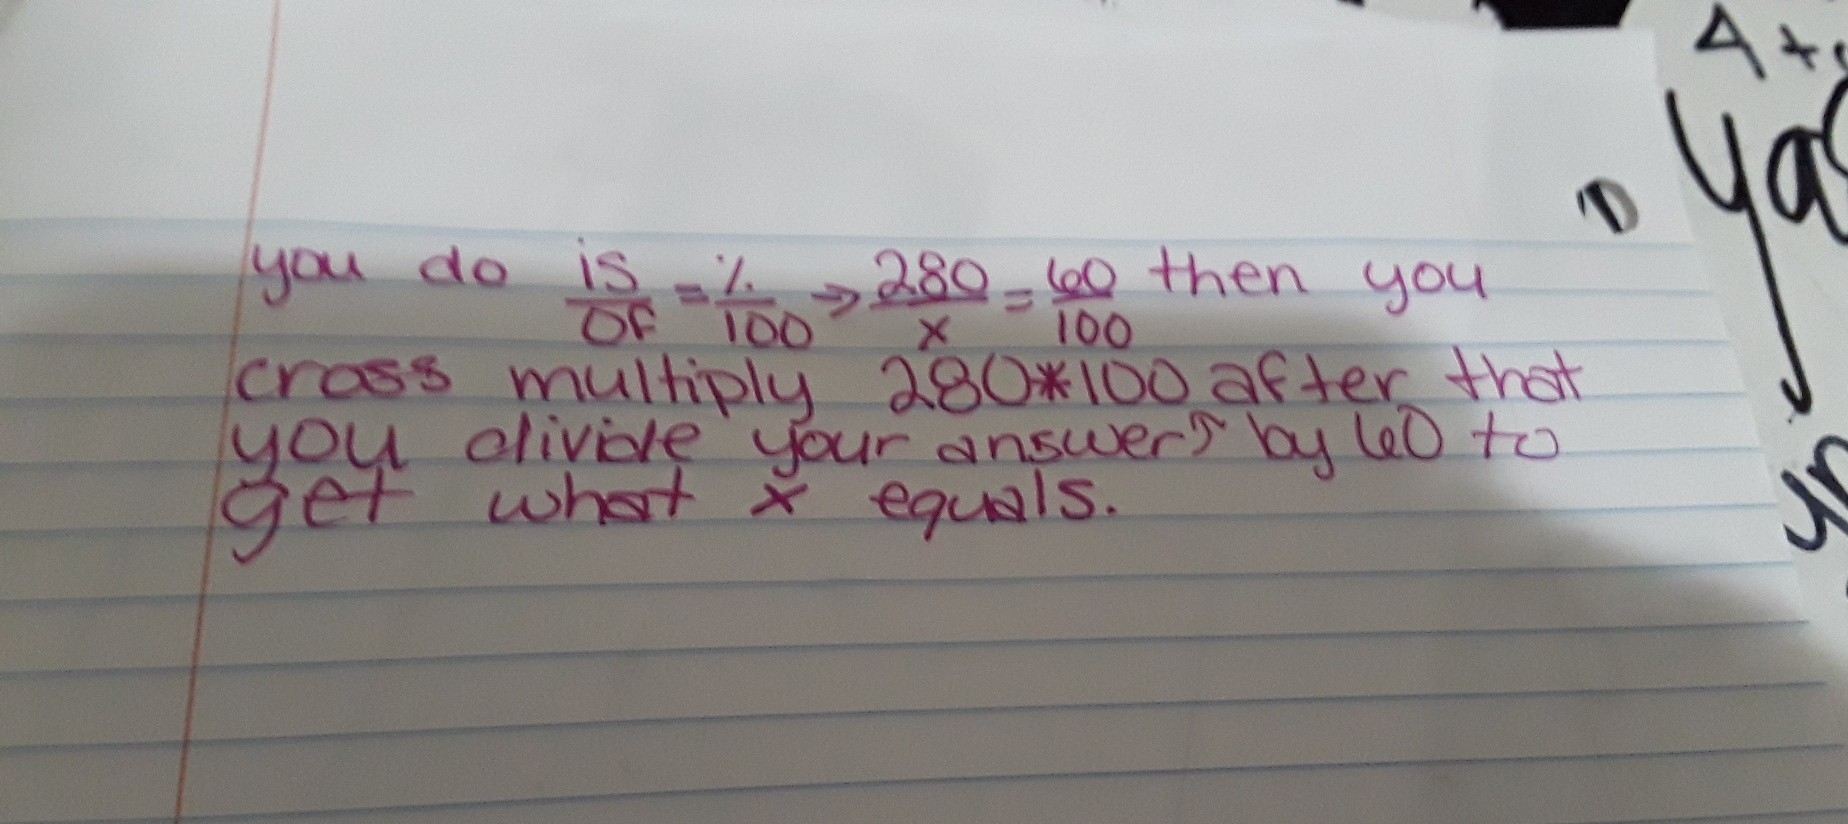 you do is/OF = %/100 → 280/x = 60/100 then you
cross multiply 280*100 after that
you divide your answer↑ by 60 to
get what x equals.